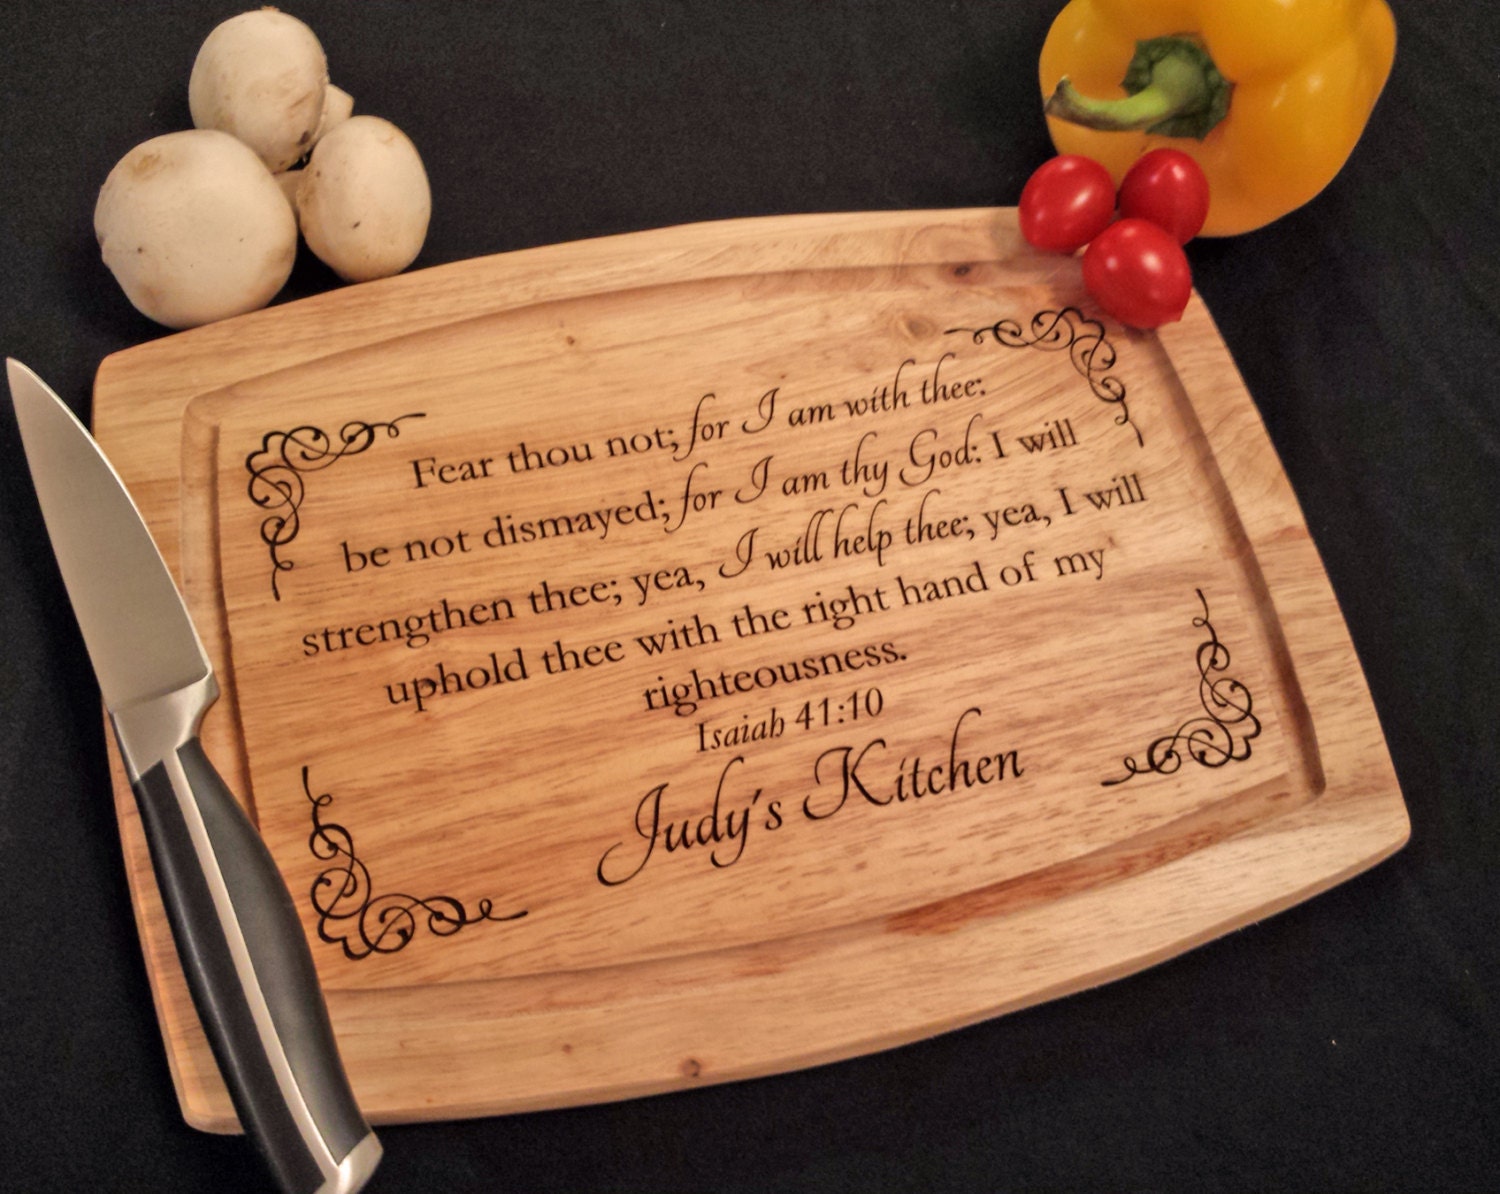 Fear thou not; for I am with thee:
be not dismayed; for I am thy God: I will
strengthen thee; yea, I will help thee; yea, I will
uphold thee with the right hand of my
righteousness.
Isaiah 41:10
Judy's Kitchen